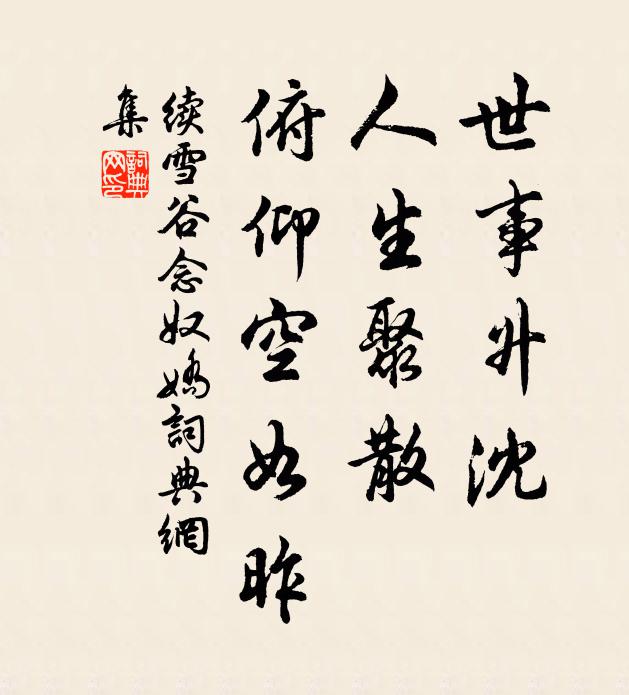 世事升沈
人生聚散
俯仰空如昨
續雪谷念奴嬌詞典網
集
詞典
网印